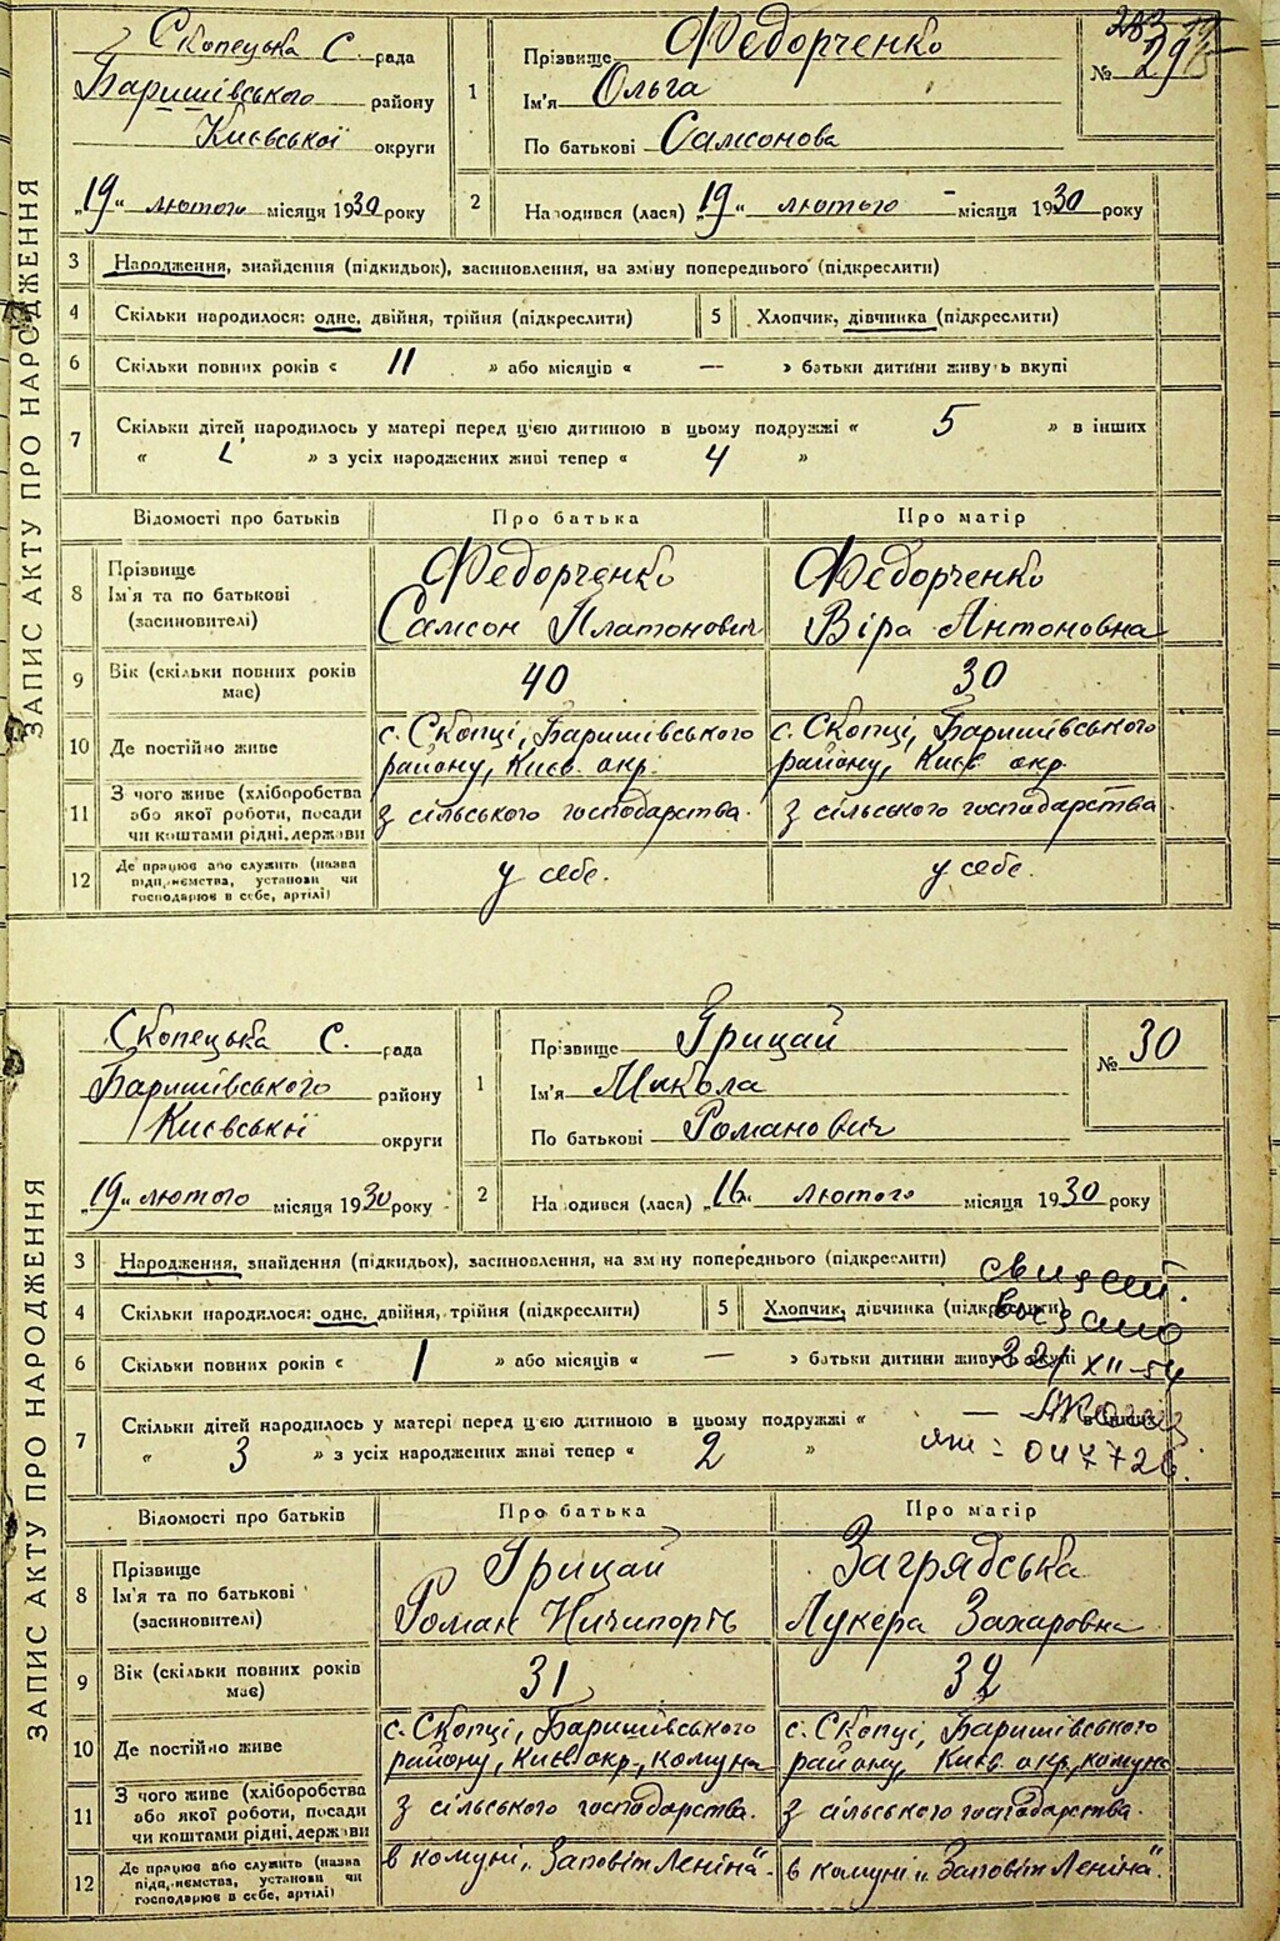 ЗАПИС АКТУ ПРО НАРОДЖЕННЯ
Скопецька С. рада
Баришівського району
Києвської округи
„19“ лютого місяця 1930 року
1
Прізвище Федорченко
Ім'я Ольга
По батькові Самсонова
№ 29
2 Народився (лася) „19“ лютого місяця 1930 року
3 Народження, знайдення (підкидьок), засиновлення, на зміну попереднього (підкреслити)
4 Скільки народилося: одне, двійня, трійня (підкреслити) 5 Хлопчик, дівчинка (підкреслити)
6 Скільки повних років « 11 » або місяців « — » батьки дитини живуть вкупі
7 Скільки дітей народилось у матері перед ц'єю дитиною в цьому подружжі « 5 » в інших
« » з усіх народжених живі тепер « 4 »
Відомості про батьків Про батька Про матір
8 Прізвище Ім'я та по батькові (засиновителі)
Федорченко Самсон Платонович
Федорченко Віра Антоновна
9 Вік (скільки повних років має) 40 30
10 Де постійно живе
с. Скопці, Баришівського району, Києв. окр.
с. Скопці, Баришівського району, Києв окр.
11 З чого живе (хліборобства або якої роботи, посади чи коштами рідні, держави
з сільського господарства.
з сільського господарства
12 Де працює або служить (назва підприємства, установи чи господарює в себе, артілі)
у себе.
у себе.
ЗАПИС АКТУ ПРО НАРОДЖЕННЯ
Скопецька С. рада
Баришівського району
Києвської округи
„19“ лютого місяця 1930 року
1
Прізвище Грицай
Ім'я Микола
По батькові Романович
№ 30
2 Народився (лася) „16“ лютого місяця 1930 року
3 Народження, знайдення (підкидьох), засиновлення, на зміну попереднього (підкреслити)
4 Скільки народилося: одне, двійня, трійня (підкреслити) 5 Хлопчик, дівчинка (підкреслити)
6 Скільки повних років « 1 » або місяців « — » батьки дитини живуть вкупі
7 Скільки дітей народилось у матері перед ц'єю дитиною в цьому подружжі « — в інших
« 3 » з усіх народжених живі тепер « 2 »
XII-54
047726.
Відомості про батьків Про батька Про матір
8 Прізвище Ім'я та по батькові (засиновителі)
Грицай Роман Ничипорів
Заградська Лукера Захаровна
9 Вік (скільки повних років має) 31 32
10 Де постійно живе
с. Скопці, Баришівського району, Києв. окр., комуна
с. Скопці, Баришівського району, Києв. окр, комуна
11 З чого живе (хліборобства або якої роботи, посади чи коштами рідні, держави
з сільського господарства.
з сільського господарства.
12 Де працює або служить (назва підприємства, установи чи господарює в себе, артілі)
в комуні „Заповіт Леніна“.
в комуні „Заповіт Леніна“.